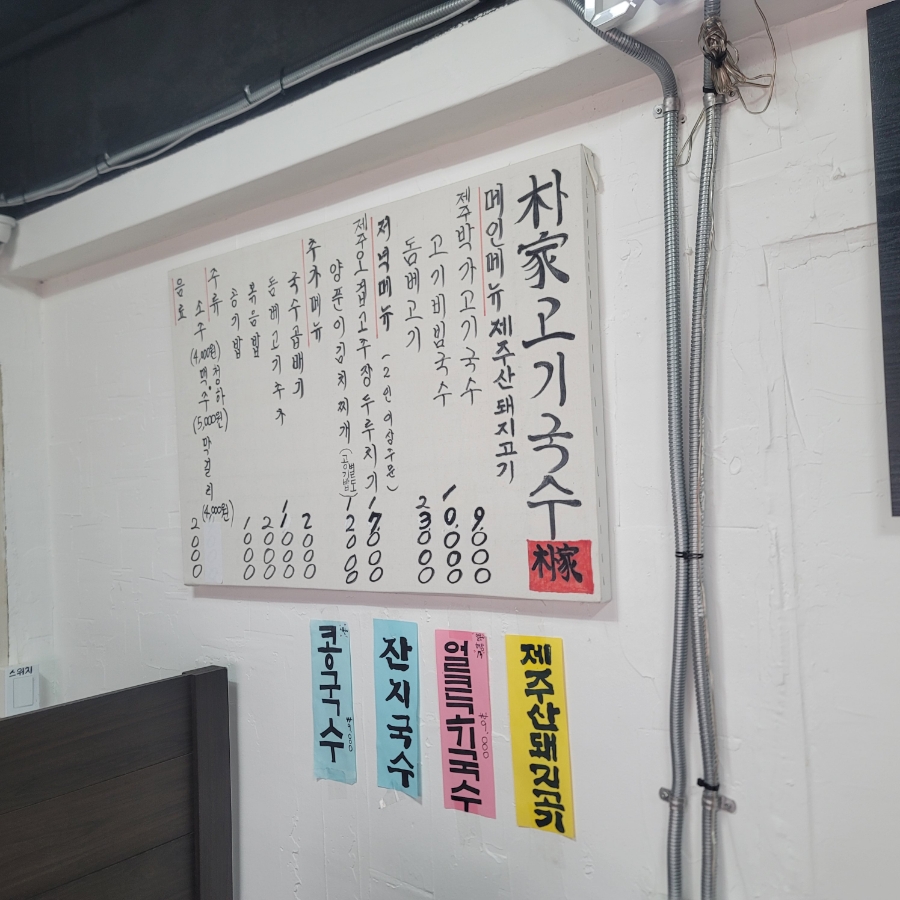 朴家고기국수
朴家
메인메뉴 제주산돼지고기
제주박가고기국수 9,000
고기비빔국수 10,000
돔베고기 23,000
저녁메뉴 (2인이상주문)
제주오겹고추장두루치기 17,000
양푼이김치찌개 (공기밥별도) 12000
추가메뉴
국수곱배기 2000
돔베고기추가 11000
볶음밥 2000
공기밥 1000
주류
소주 (4,000원) 맥주 (5,000원) 막걸리 (4,000원)
청하
음료 2000
제주산돼지고기
얼큰고기국수 ₩9,000
잔치국수
콩국수
스위치